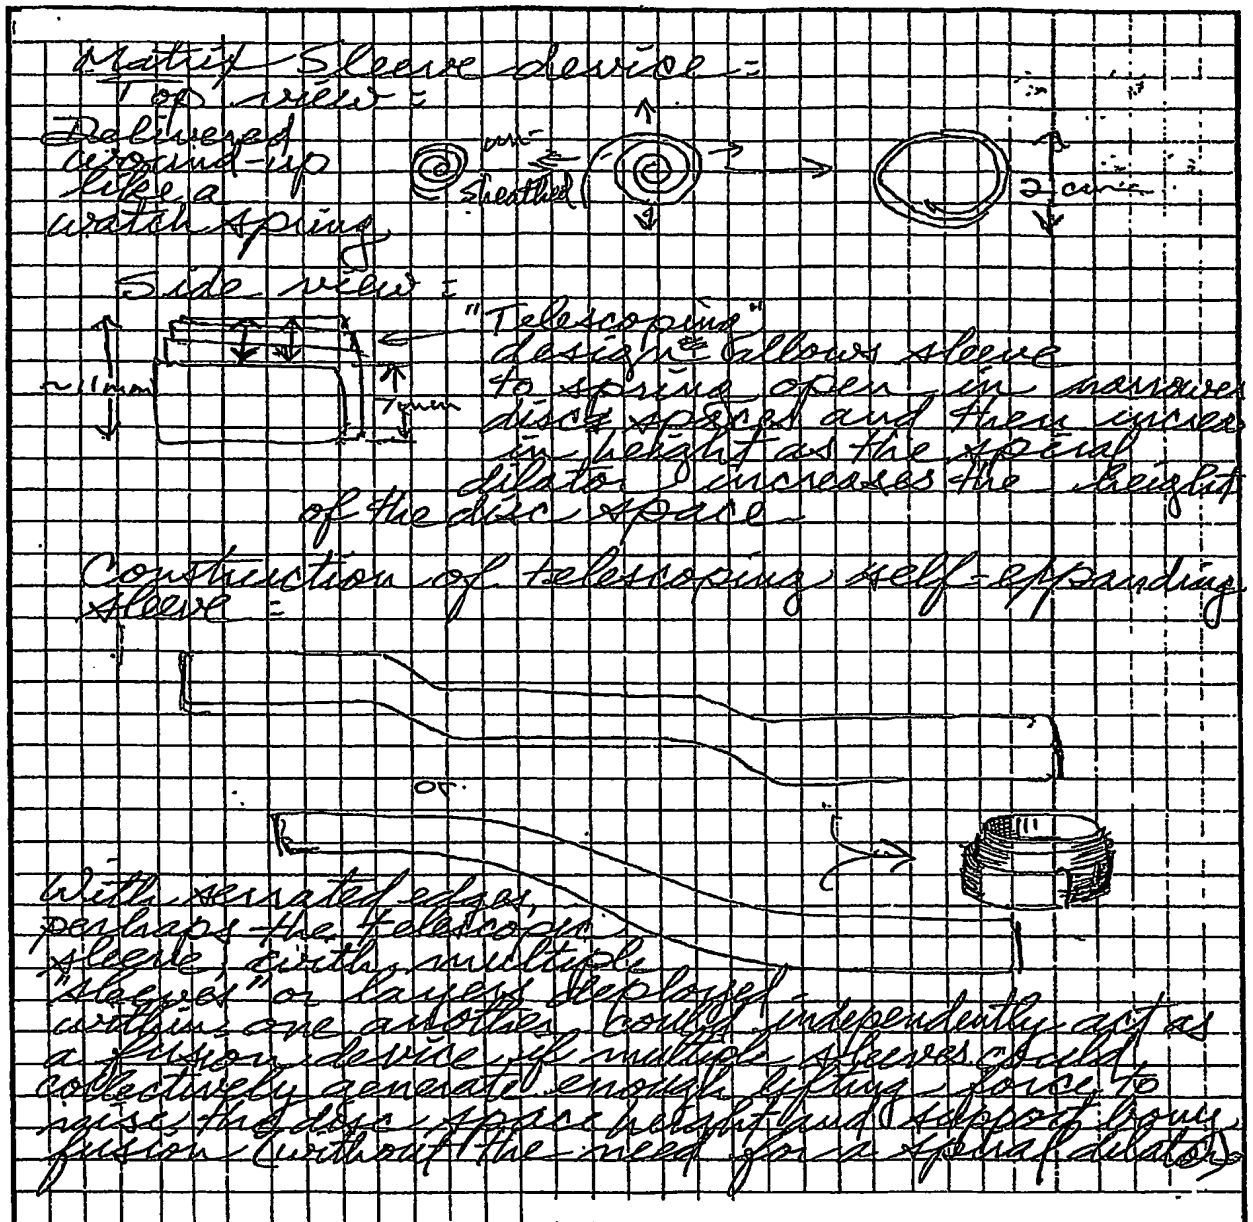 Matrix Sleeve device =
Top view =
Delivered
wound-up
like a
watch spring
un-
sheathed
2 cm
Side view =
~11mm
7mm
"Telescoping"
design allows sleeve
to spring open in narrower
disc spaces and then increa
in height as the spiral
dilator increases the height
of the disc space
Construction of telescoping self-expanding
sleeve =
or
With serrated edges,
perhaps the telescopic
sleeve, with multiple
"sleeves" or layers deployed
within one another, could independently act as
a fusion device if multiple sleeves could
collectively generate enough lifting force to
raise the disc space height and support bony
fusion (without the need for a spiral dilator)